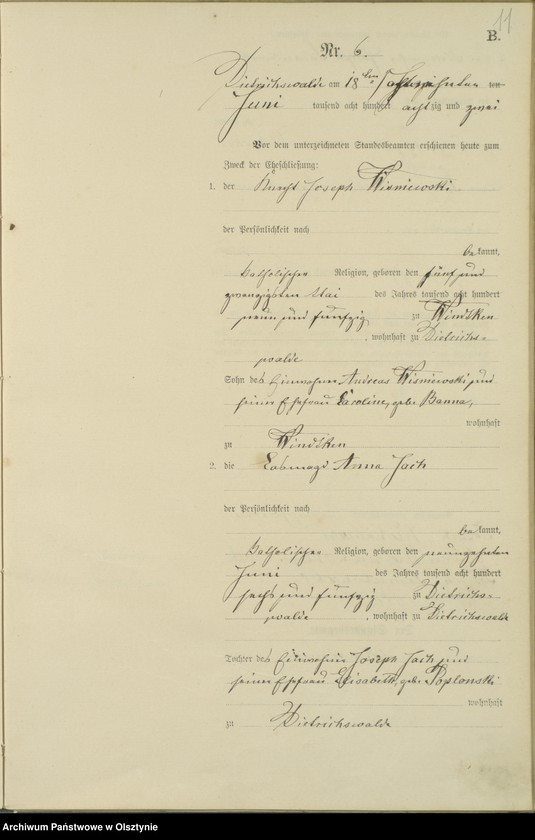 11
B.
Nr. 6.
Dietrichswalde am 18ten achtzehnten ten
Juni tausend acht hundert achtzig und zwei
Vor dem unterzeichneten Standesbeamten erschienen heute zum
Zweck der Eheschließung:
1. der Knecht Joseph Wisniewski
der Persönlichkeit nach
bekannt,
katholischer Religion, geboren den fünf und
zwanzigsten Mai des Jahres tausend acht hundert
neun und fünfzig zu Windtken
, wohnhaft zu Dietrichs-
walde
Sohn des Einwohner Andreas Wisniewski und
seiner Ehefrau Caroline, geb. Banna,
wohnhaft
zu Windtken
2. die Losmagd Anna Jach
der Persönlichkeit nach
bekannt,
katholischer Religion, geboren den neunzehnten
Juni des Jahres tausend acht hundert
sechs und fünfzig zu Dietrichs-
walde , wohnhaft zu Dietrichswalde
Tochter des Einwohner Joseph Jach und
seiner Ehefrau Elisabeth, geb. Poplonski
wohnhaft
zu Dietrichswalde
Archiwum Państwowe w Olsztynie